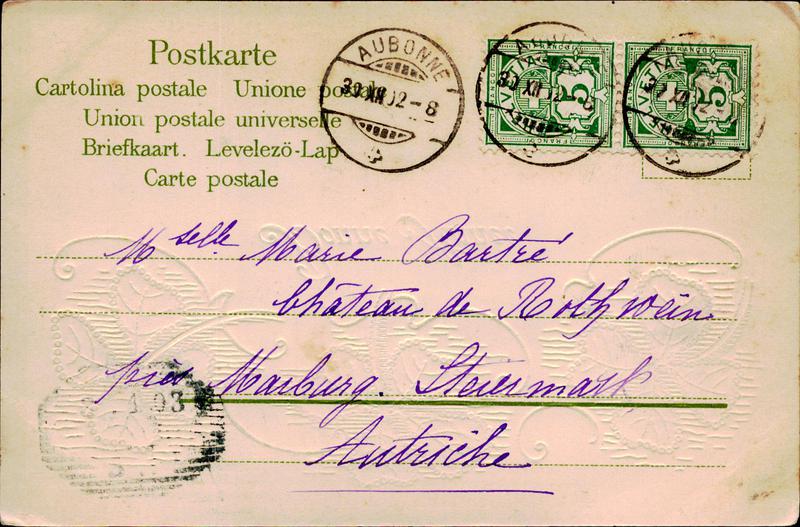 Postkarte
Cartolina postale Unione postale
Union postale universelle
Briefkaart. Levelezö-Lap
Carte postale
AUBONNE
30 XII 02-8
FRANCO
5
FRANCO
5
Mselle Marie Bartré
Château de Rothwein
près Marburg. Steiermark
Autriche
1 03